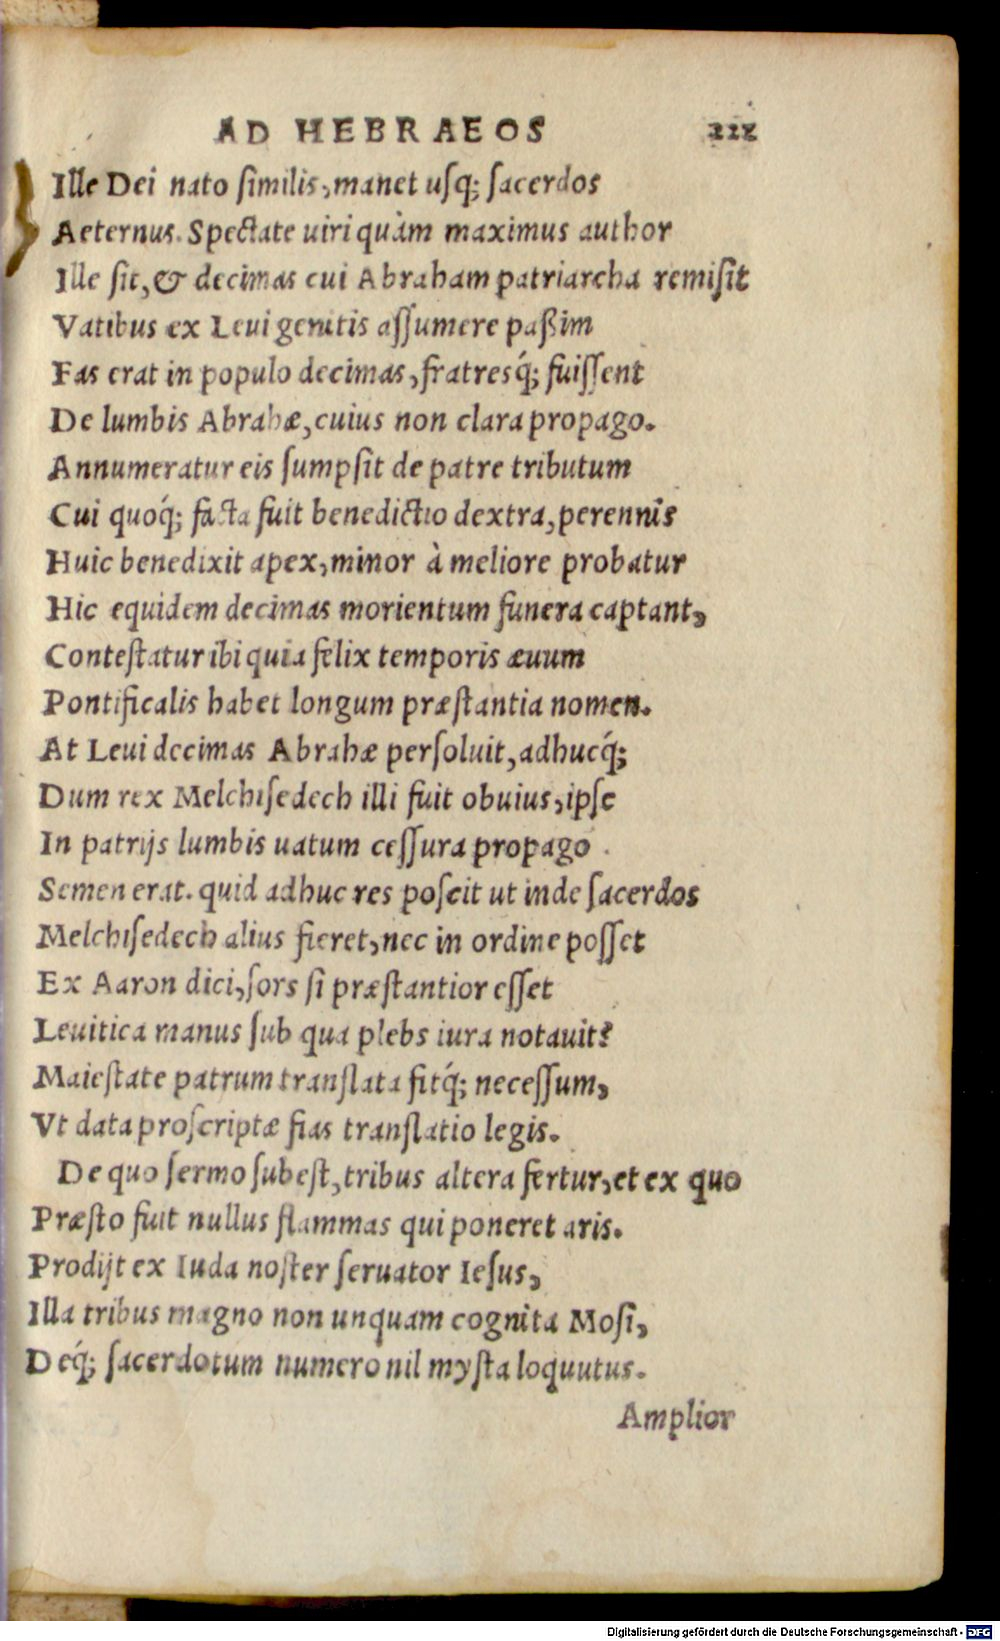 AD HEBRAEOS 111
Ille Dei nato ſimilis, manet uſq; ſacerdos
Aeternus. Spectate uiri quàm maximus author
Ille ſit, & decimas cui Abraham patriarcha remiſit
Vatibus ex Leui genitis aſſumere paßim
Fas erat in populo decimas, fratresq́; fuiſſent
De lumbis Abrahæ, cuius non clara propago.
Annumeratur eis ſumpſit de patre tributum
Cui quoq́; facta fuit benedictio dextra, perennis
Huic benedixit apex, minor à meliore probatur
Hic equidem decimas morientum funera captant,
Conteſtatur ibi quia felix temporis æuum
Pontificalis habet longum præſtantia nomen.
At Leui decimas Abrahæ perſoluit, adhucq́;
Dum rex Melchiſedech illi fuit obuius, ipſe
In patrijs lumbis uatum ceſſura propago .
Semen erat. quid adhuc res poſcit ut inde ſacerdos
Melchiſedech alius fieret, nec in ordine poſſet
Ex Aaron dici, ſors ſi præſtantior eſſet
Leuitica manus ſub qua plebs iura notauit?
Maieſtate patrum tranſlata fitq́; neceſſum,
Vt data proſcriptæ fias tranſlatio legis.
De quo ſermo ſubeſt, tribus altera fertur, et ex quo
Præſto fuit nullus flammas qui poneret aris.
Prodijt ex Iuda noſter ſeruator Ieſus,
Illa tribus magno non unquam cognita Moſi,
Deq́; ſacerdotum numero nil myſta loquutus.
Amplior
Digitalisierung gefördert durch die Deutsche Forschungsgemeinschaft - DFG